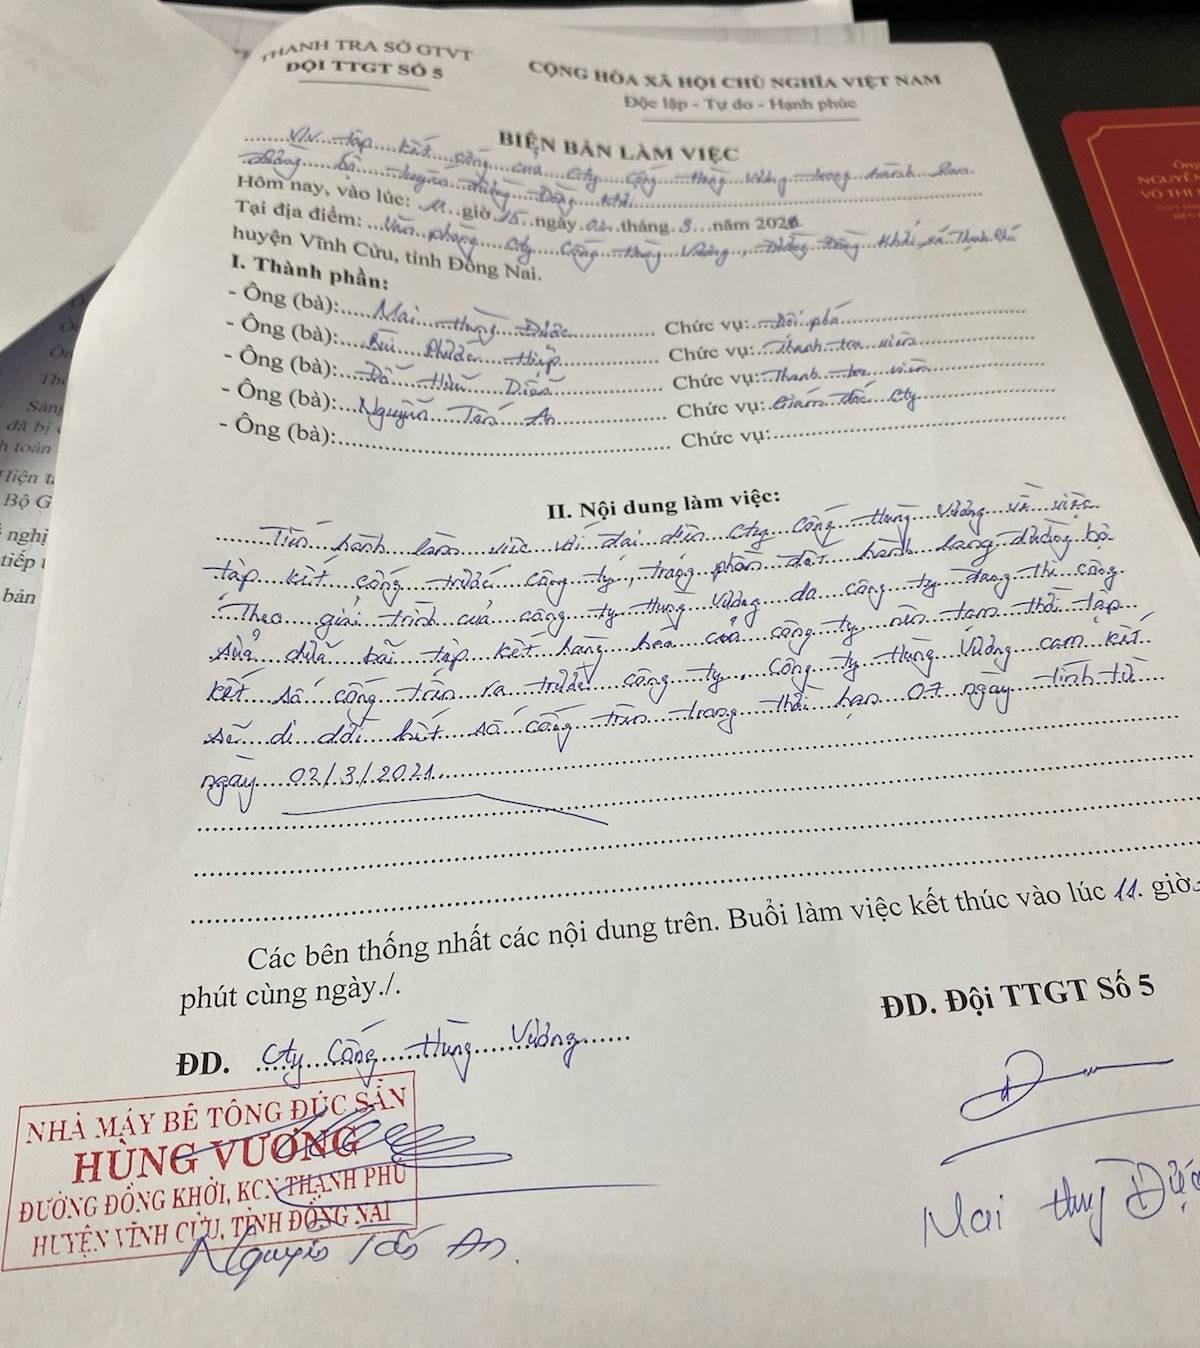 THANH TRA SỞ GTVT
ĐỘI TTGT SỐ 5
CỘNG HÒA XÃ HỘI CHỦ NGHĨA VIỆT NAM
Độc lập - Tự do - Hạnh phúc
BIÊN BẢN LÀM VIỆC
V/v tập kết cống của Cty Cống Hùng Vương trong hành lan
đường bộ tuyến đường Đồng Khởi
Hôm nay, vào lúc: 11 giờ 15 ngày 02 tháng 3 năm 2021
Tại địa điểm: Văn phòng Cty Cống Hùng Vương, Đường Đồng Khởi, xã Thạnh Phú
huyện Vĩnh Cửu, tỉnh Đồng Nai.
I. Thành phần:
- Ông (bà): Mai Hùng Được Chức vụ: Đội phó
- Ông (bà): Bùi Phước Hiệp Chức vụ: Thanh tra viên
- Ông (bà): Đỗ Hữu Diện Chức vụ: Thanh tra viên
- Ông (bà): Nguyễn Tấn An Chức vụ: Giám đốc Cty
- Ông (bà): Chức vụ:
II. Nội dung làm việc:
Tiến hành làm việc với đại diện Cty Cống Hùng Vương về việc
tập kết cống trước công ty, trong phần đất hành lang đường bộ.
Theo giải trình của công ty Hùng Vương do công ty đang thi công
sửa chữa bãi tập kết hàng hóa của công ty nên tạm thời tập
kết số cống trên ra trước công ty. Công ty Hùng Vương cam kết
sẽ di dời hết số cống trên trong thời hạn 07 ngày tính từ
ngày 02/3/2021.
Các bên thống nhất các nội dung trên. Buổi làm việc kết thúc vào lúc 11 giờ
phút cùng ngày./.
ĐD. Cty Cống Hùng Vương
ĐD. Đội TTGT Số 5
NHÀ MÁY BÊ TÔNG ĐÚC SẴN
HÙNG VƯƠNG
ĐƯỜNG ĐỒNG KHỞI, KCN THẠNH PHÚ
HUYỆN VĨNH CỬU, TỈNH ĐỒNG NAI
Nguyễn Tấn An.
Mai Hùng Được